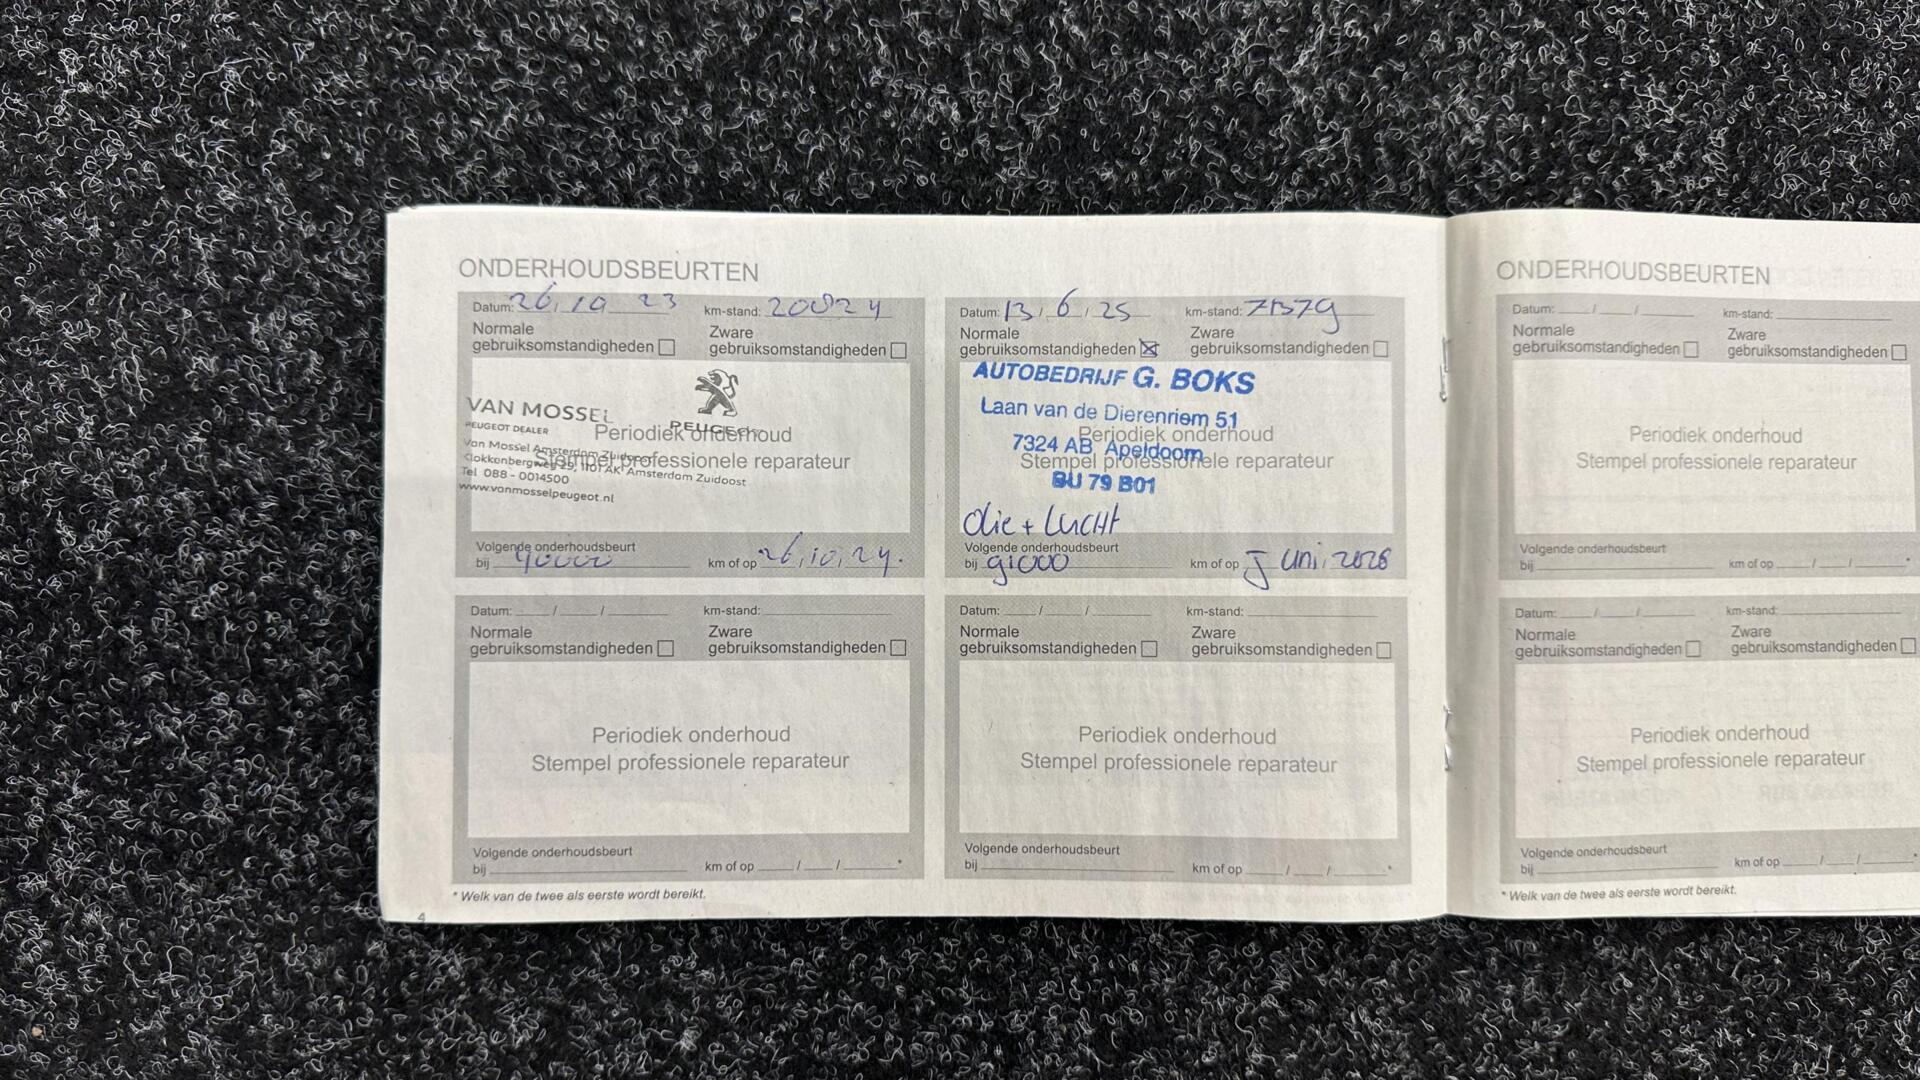 ONDERHOUDSBEURTEN
Datum: 26, 10 23 km-stand: 20824
Normale gebruiksomstandigheden
Zware gebruiksomstandigheden
VAN MOSSEL
PEUGEOT DEALER
PEUGEOT
Van Mossel Amsterdam Zuidoost
Klokkenbergweg 29, 1101 AK Amsterdam Zuidoost
Tel 088 - 0014500
www.vanmosselpeugeot.nl
Periodiek onderhoud
Stempel professionele reparateur
Volgende onderhoudsbeurt
bij 40000 km of op 26, 10, 24.
Datum: 13, 6, 25 km-stand:
Normale gebruiksomstandigheden
Zware gebruiksomstandigheden
AUTOBEDRIJF G. BOKS
Laan van de Dierenriem 51
7324 AB Apeldoorn
BU 79 B01
Periodiek onderhoud
Stempel professionele reparateur
Olie + LUCHT
Volgende onderhoudsbeurt
bij 91000 km of op Juni, 2026
Datum: / / km-stand:
Normale gebruiksomstandigheden
Zware gebruiksomstandigheden
Periodiek onderhoud
Stempel professionele reparateur
Volgende onderhoudsbeurt
bij km of op / / *
Datum: / / km-stand:
Normale gebruiksomstandigheden
Zware gebruiksomstandigheden
Periodiek onderhoud
Stempel professionele reparateur
Volgende onderhoudsbeurt
bij km of op / / *
* Welk van de twee als eerste wordt bereikt.
4
ONDERHOUDSBEURTEN
Datum: / / km-stand:
Normale gebruiksomstandigheden
Zware gebruiksomstandigheden
Periodiek onderhoud
Stempel professionele reparateur
Volgende onderhoudsbeurt
bij km of op / / *
Datum: / / km-stand:
Normale gebruiksomstandigheden
Zware gebruiksomstandigheden
Periodiek onderhoud
Stempel professionele reparateur
Volgende onderhoudsbeurt
bij km of op / / *
* Welk van de twee als eerste wordt bereikt.